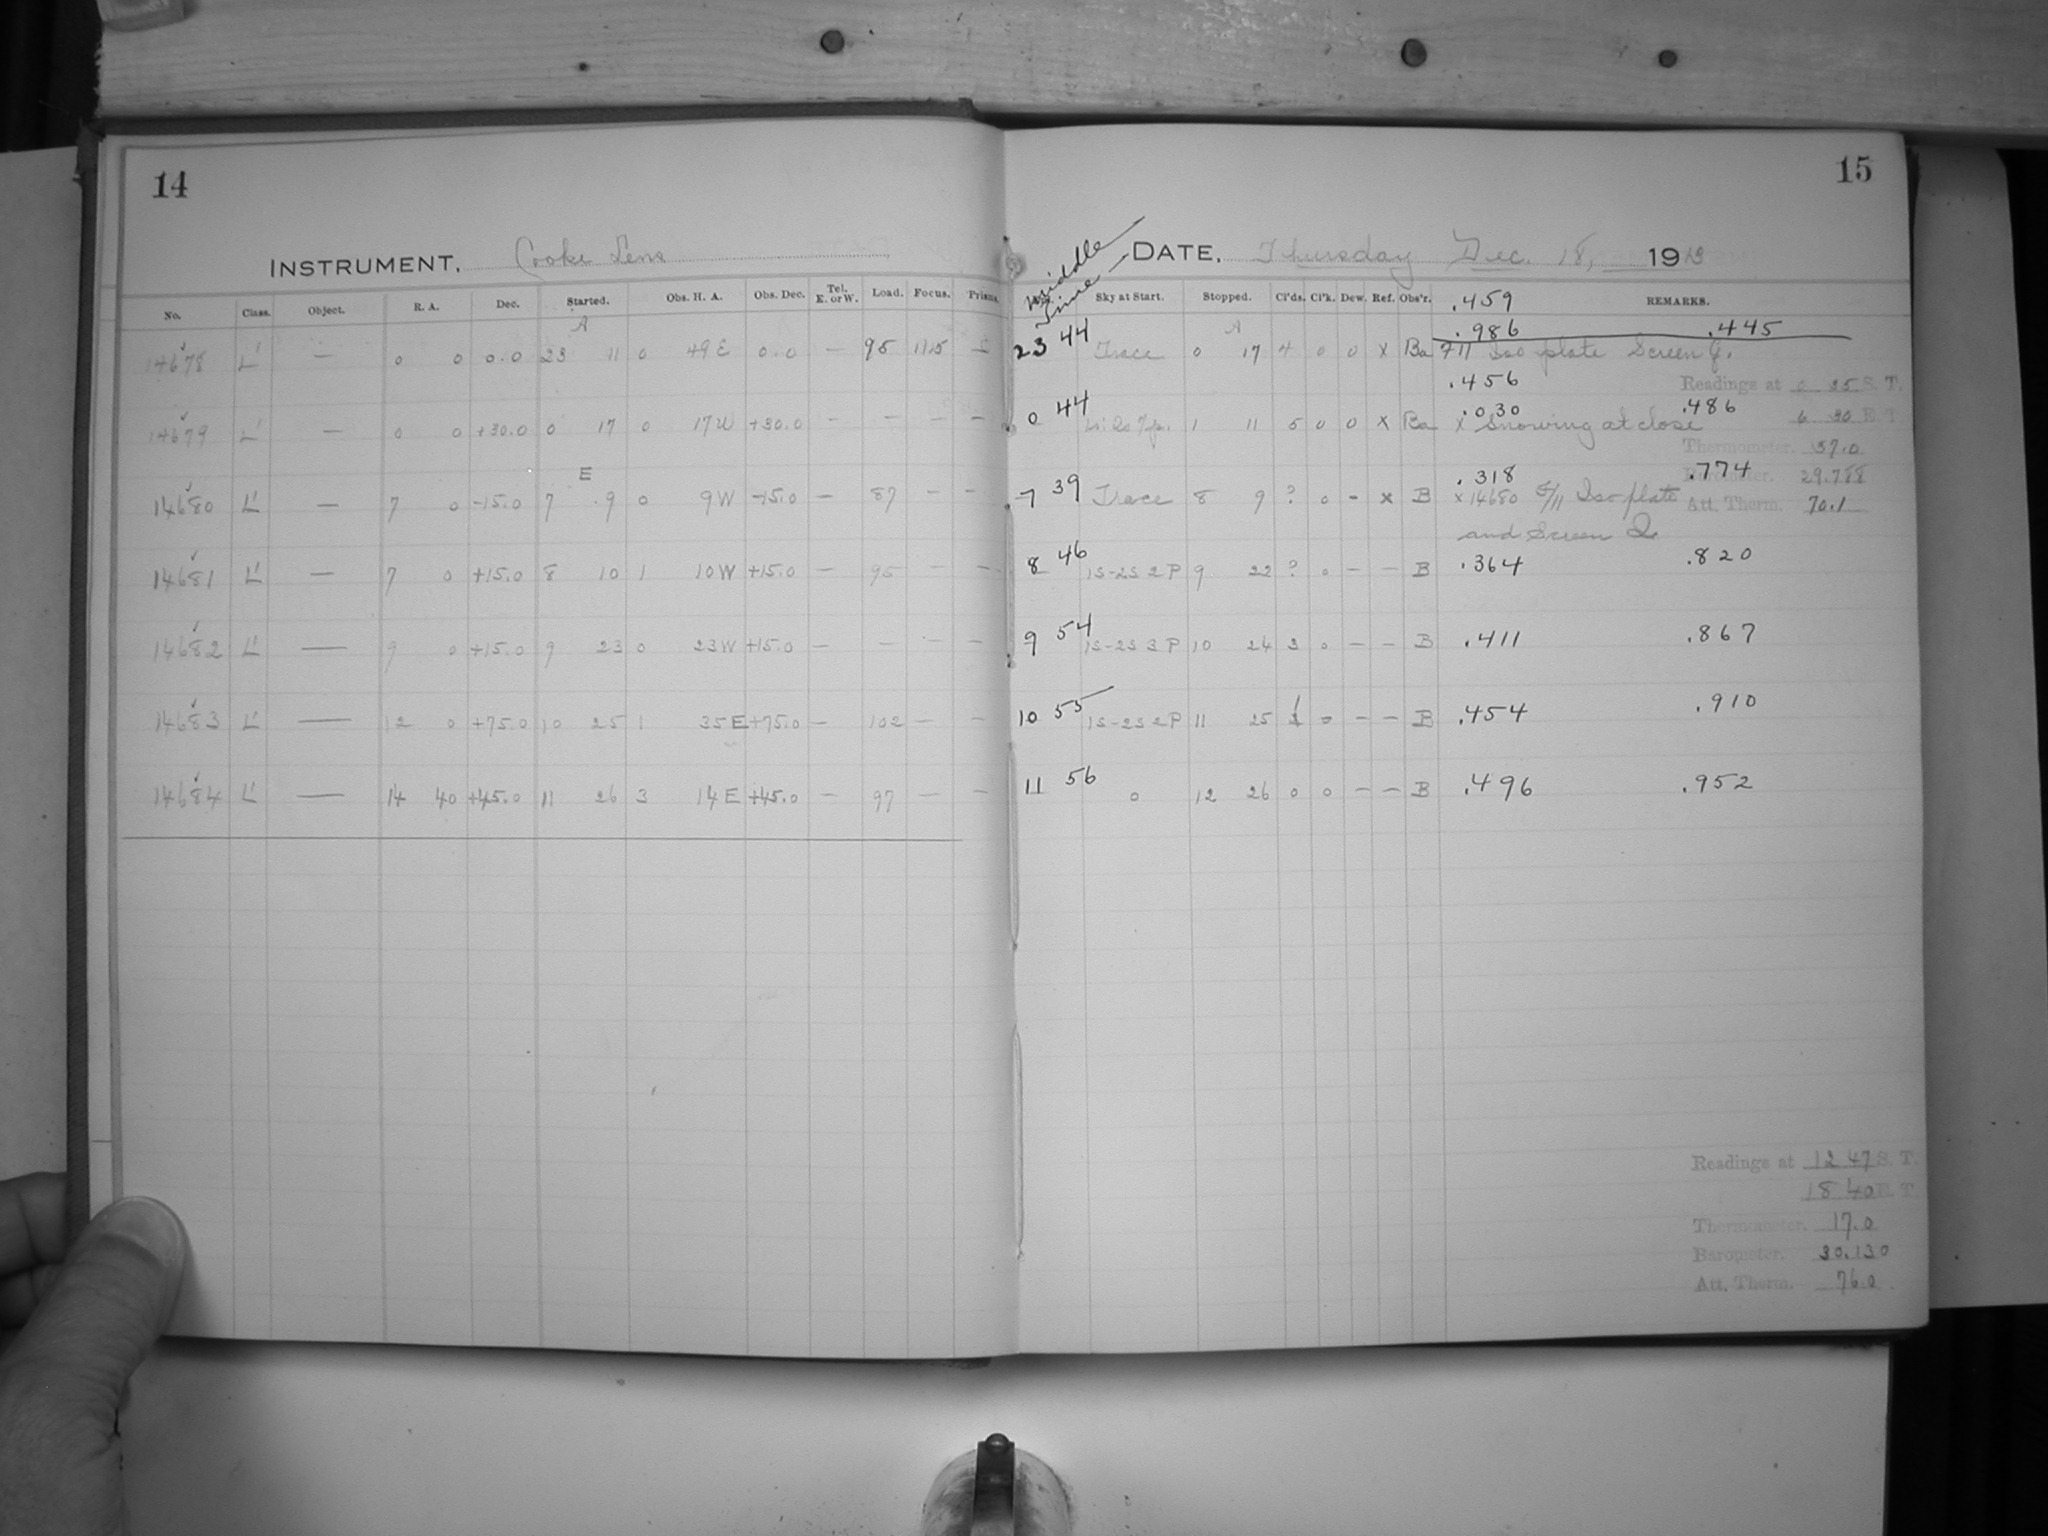 14
15
INSTRUMENT. Cooke Lens
Middle Time
DATE. Thursday Dec. 18, 1913
No. Class. Object. R. A. Dec. Started. Obs. H. A. Obs. Dec. Tel. E. or W. Load. Focus. Prisms. Sky at Start. Stopped. Cl'ds. Cl'k. Dew. Ref. Obs'r. REMARKS.
.459
A A .986 .445
14678 L' — 0 0 0.0 23 11 0 49 E 0.0 — 95 11.5 — 23 44 Trace 0 17 4 0 0 x Ba F11 Iso plate Screen
.456 Readings at 0 35 S. T.
.030 .486
14679 L' — 0 0 +30.0 0 17 0 17 W +30.0 — — — — 0 44 1 11 5 0 0 x Ba x Snowing at close 6 30 E. T.
Thermometer. 37.0
E .318 .774 Barometer. 29.788
14680 L' — 7 0 -15.0 7 9 0 9 W -15.0 — 87 — — 7 39 Trace 8 9 ? 0 - x B x 14680 F/11 Iso plate Att. Therm. 70.1
and Screen
14681 L' — 7 0 +15.0 8 10 1 10 W +15.0 — 95 — — 8 46 1S-2S 2P 9 22 ? 0 — — B .364 .820
14682 L' — 9 0 +15.0 9 23 0 23 W +15.0 — — — — 9 54 1S-2S 3P 10 24 3 0 — — B .411 .867
14683 L' — 12 0 +75.0 10 25 1 35 E +75.0 — 102 — — 10 55 1S-2S 2P 11 25 1 0 — — B .454 .910
14684 L' — 14 40 +45.0 11 26 3 14 E +45.0 — 97 — — 11 56 0 12 26 0 0 — — B .496 .952
Readings at 12 47 S. T.
18 40 E. T.
Thermometer. 17.0
Barometer. 30.130
Att. Therm. 76.0